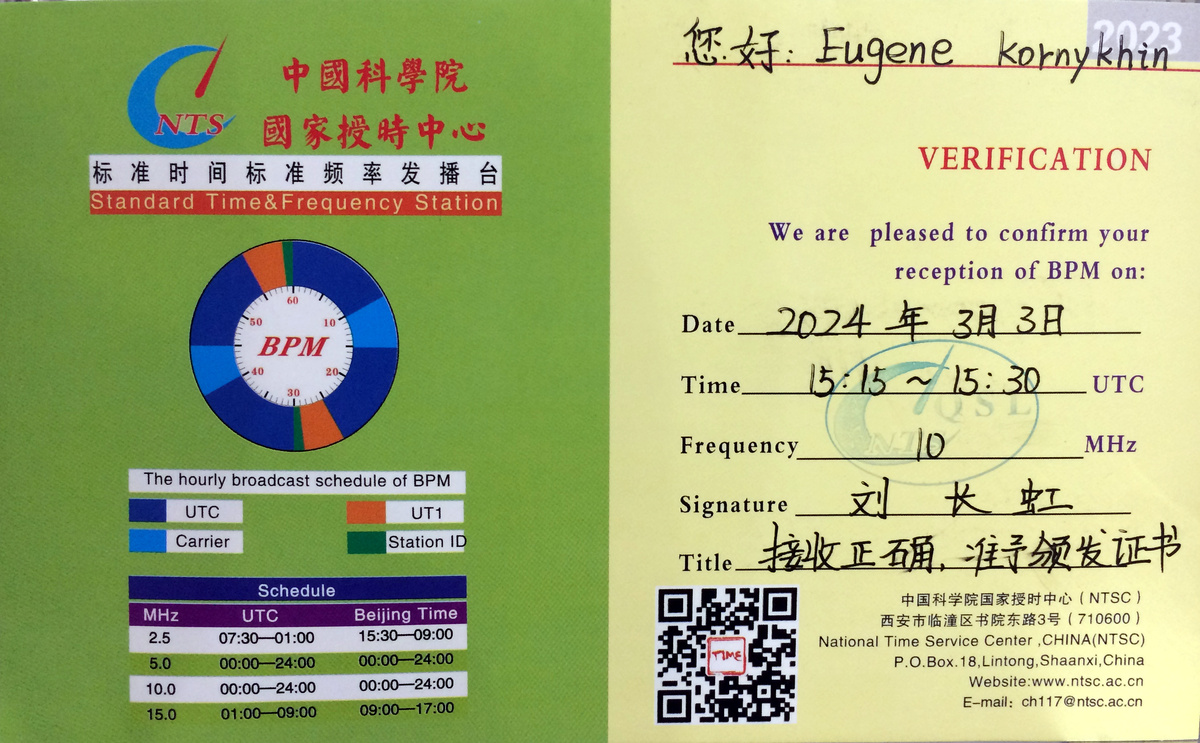 NTS
中國科學院
國家授時中心
标准时间标准频率发播台
Standard Time&Frequency Station
60
50
10
BPM
40
20
30
The hourly broadcast schedule of BPM
UTC
UT1
Carrier
Station ID
Schedule
MHz UTC Beijing Time
2.5 07:30—01:00 15:30—09:00
5.0 00:00—24:00 00:00—24:00
10.0 00:00—24:00 00:00—24:00
15.0 01:00—09:00 09:00—17:00
2023
您好: Eugene Kornykhin
VERIFICATION
We are pleased to confirm your
reception of BPM on:
Date 2024年3月3日
Time 15:15~15:30 UTC
QSL
NTS
Frequency 10 MHz
Signature 刘长虹
Title 接收正确,准予颁发证书
TIME
中国科学院国家授时中心(NTSC)
西安市临潼区书院东路3号(710600)
National Time Service Center ,CHINA(NTSC)
P.O.Box.18,Lintong,Shaanxi,China
Website:www.ntsc.ac.cn
E-mail: ch117@ntsc.ac.cn